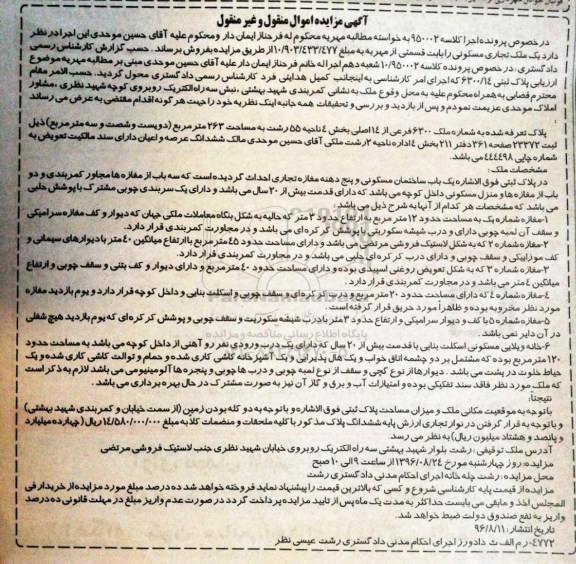 آگهی مزایده اموال منقول و غیر منقول
در خصوص پرونده اجرا کلاسه ۹۵۰۰۰۲ به خواسته مطالبه مهریه محکوم له فرحناز ایمان دار و محکوم علیه آقای حسین موحدی این اجرا در نظر
دارد یک ملک تجاری مسکونی را بابت قسمتی از مهریه به مبلغ ۱۰/۹۰۳/۴۳۳/۴۷۷ از طریق مزایده بفروش برساند. حسب گزارش کارشناس رسمی
دادگستری: در خصوص پرونده کلاسه ۱۰/۹۵۰۰۰۲ شعبه دهم اجرا له خانم فرحناز ایمان دار علیه آقای حسین موحدی مبنی بر مطالبه مهریه موضوع
ارزیابی پلاک ثبتی ۶۳۰۰/۱۴ که اجرای امر کارشناسی به اینجانب کمیل هدایتی فرد کارشناس رسمی دادگستری محول گردید. حسب الامر مقام
محترم قضایی به همراه محکوم علیه به محل وقوع ملک به نشانی کمربندی شهید بهشتی، نبش سه راه الکتریک روبروی کوچه شهید نظری، مشاور
املاک موحدی عزیمت نمودم و پس از بازدید و بررسی و تحقیقات همه جانبه اینک نظریه خود را جهت هرگونه اقدام مقتضی به عرض می رساند
:
پلاک تعرفه شده به شماره ملک ۶۳۰۰ فرعی از ۱۴ اصلی بخش ۴ ناحیه ۵۵ رشت به مساحت ۲۶۳ متر مربع (دویست و شصت و سه متر مربع) ذیل
ثبت ۲۳۳۷۲ صفحه ۳۶۱ دفتر ۲۱۱ بخش ۴ اداره ناحیه ۲ رشت ملکی آقای حسین موحدی مالک ششدانگ عرصه و اعیان دارای سند مالکیت تعویض به
شماره چاپی ۴۴۴۴۹۸ می باشد.
مشخصات ملک:
در پلاک ثبتی فوق الاشاره یک باب ساختمان مسکونی و پنج دهنه مغازه تجاری احداث گردیده است که سه باب از مغازه ها مجاور کمربندی و دو
باب از مغازه ها و منزل مسکونی داخل کوچه می باشد که دارای قدمت بیش از ۲۰ سال می باشد و دارای یک سربندی چوبی مشترک با پوشش حلبی
می باشد که مشخصات هر کدام از آنها به شرح ذیل می باشد.
۱-مغازه شماره یک به مساحت حدود ۱۲ متر مربع به ارتفاع حدود ۳ متر که حالیه به شکل بنگاه معاملات ملکی جهان که دیوار و کف مغازه سرامیکی
و سقف آن لمبه چوبی دارای و درب شیشه سکوریتی با پوشش کرکره ای می باشد و در مجاورت کمربندی قرار دارد.
۲-مغازه شماره ۲ که به شکل لاستیک فروشی مرتضی می باشد و دارای مساحت حدود ۴۵ متر مربع با ارتفاع میانگین ۴۰ متر با دیوارهای سیمانی و
کف موزاییکی و سقف چوبی و دارای درب کرکره ای حلبی می باشد و در مجاورت کمربندی قرار دارد.
۳-مغازه شماره ۳ که به شکل تعویض روغنی اسپیدی بوده و دارای مساحت حدود ۴۰ متر مربع و دارای دیوار و کف بتنی و سقف چوبی و ارتفاع
میانگین ۴ متر می باشد و در مجاورت کمربندی قرار دارد.
۴-مغازه شماره ۴ که دارای مساحت حدود ۲۰ متر مربع و درب کرکره ای و سقف چوبی و اسکلت بنایی و داخل کوچه قرار دارد و یوم بازدید مغازه
مورد نظر مخروبه بوده و ظاهراً مورد حریق قرار گرفته است.
۵-مغازه شماره ۵ با کف و دیوار سرامیکی و ارتفاع حدود ۳ متر با درب شیشه سکوریت و سقف چوبی و پوشش کرکره ای که یوم بازدید هیچ شغلی
در آن دایر نمی باشد.
۶-خانه ویلایی مسکونی اسکلت بنایی با قدمت بیش از ۲۰ سال که دارای یک درب ورودی نفر رو آهنی از داخل کوچه می باشد به مساحت حدود
۱۲۰ متر مربع بوده که مشتمل بر دو چشمه اتاق خواب و یک هال پذیرایی و یک آشپزخانه کاشی کاری شده و حمام و توالت کاشی کاری شده و یک
حیاط خلوت در پشت می باشد. دیوارها از نوع گچی و سقف از نوع لمبه چوبی و درب ها چوبی و پنجره ها آلومینیومی می باشد لازم به ذکر است
که ملک مورد نظر فاقد سند تفکیکی بوده و امتیازات آب و برق و گاز آن نیز به صورت مشترک در حال بهره برداری می باشد.
نتیجتا:
با توجه به موقعیت مکانی ملک و میزان مساحت پلاک ثبتی فوق الاشاره و با توجه به دو کله بودن زمین (از سمت خیابان و کمربندی شهید بهشتی)
و با توجه به قرار گرفتن در نوار تجاری ارزش پایه ششدانگ پلاک مذکور با کلیه ملحقات و منضمات کلا به مبلغ ۱۴/۵۸۰/۰۰۰/۰۰۰ ریال (چهارده میلیارد
و پانصد و هشتاد میلیون ریال) به نظر می رسد.
آدرس ملک توقیفی: رشت بلوار شهید بهشتی سه راه الکتریک روبروی خیابان شهید نظری جنب لاستیک فروشی مرتضی
مزایده: روز چهارشنبه مورخ ۱۳۹۶/۰۸/۲۴ از ساعت ۹ الی ۱۰ صبح
محل مزایده: رشت چله خانه اجرای احکام مدنی دادگستری رشت
مزایده از قیمت پایه کارشناسی شروع و کسی که بالاترین قیمت را پیشنهاد نماید فروخته خواهد شد ده درصد مبلغ مورد مزایده از خریدار فی
المجلس اخذ و مابقی می بایست حداکثر به مدت یک ماه پس از تایید مزایده پرداخت گردد در صورت عدم واریز مبلغ در مهلت قانونی ده درصد
واریز به نفع صندوق دولت ضبط خواهد شد.
تاریخ انتشار: ۹۶/۸/۱۱
۴۷۷۲-رم الف ث دادورز اجرای احکام مدنی دادگستری رشت عیسی نظر
پایگاه اطلاع رسانی مناقصه و مزایده